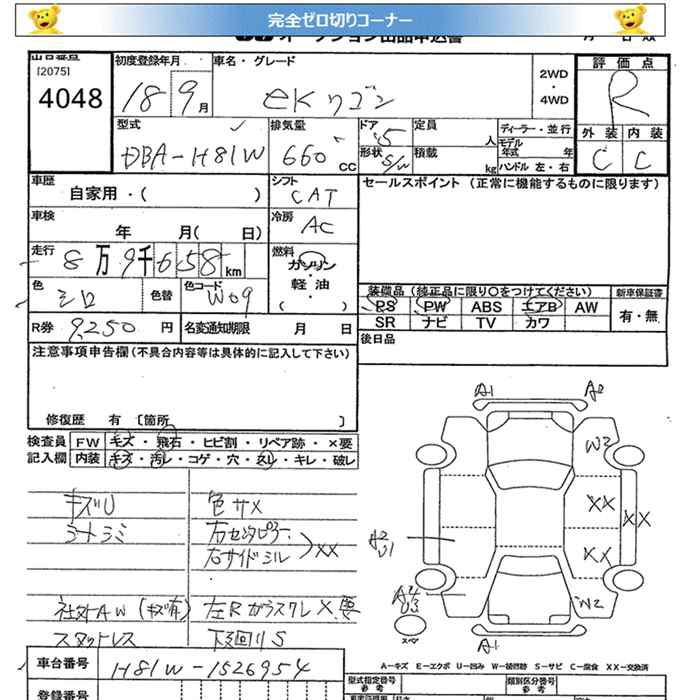 完全ゼロ切りコーナー
オークション出品申込書
出品番号 初度登録年月 車名・グレード 評価点
[2075]
4048 18 9月 eKワゴン 2WD ・ 4WD R
型式 排気量 ドア 5 定員 人 ディーラー・並行 外装 内装
DBA-H81W 660 CC 形状 S/W 積載 kg モデル年式 年 C C
ハンドル 左・右
車歴 シフト セールスポイント (正常に機能するものに限ります)
自家用・( ) CAT
車検 冷房
年 月( 日) AC
走行 燃料
8万9千658km ガソリン・軽・油
( )
色 色コード 装備品 (純正品に限り○をつけてください) 新車保証書
シロ 色替 W09 PS PW ABS エアB AW 有・無
R券 9,250 円 名変通知期限 月 日 SR ナビ TV カワ
注意事項申告欄(不具合内容等は具体的に記入して下さい) 後日品
修復歴 有 [箇所 ]
検査員 FW キズ・飛石・ヒビ割・リペア跡・×要
記入欄 内装 キズ・汚レ・コゲ・穴・スリ・キレ・破レ
A1
W2
XX
XX
XX
A2
U1
U3
W2
A1
スペア
キズU 色サメ
シートシミ 右センタピラー
右サイドシル XX
社外AW(キズ有) 左Rガラスワレ×要
スタッドレス 下廻りS
A-キズ E-エクボ U-凹み W-補修跡 S-サビ C-腐食 XX-交換済
車台番号 H81W-1526954
型式指定番号 参考 類別区分番号 参考
登録番号